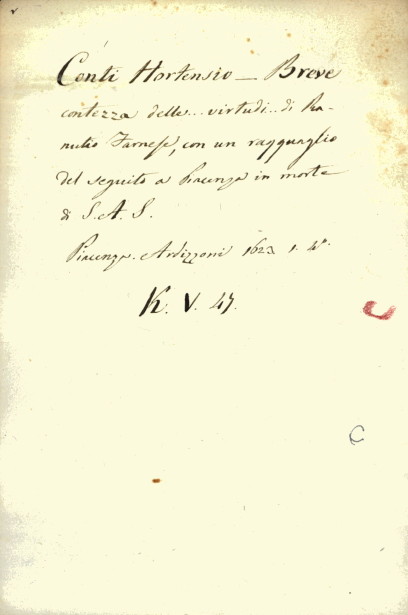 Conti Hortensio — Breve
contezza delle... virtudi.. di Ra-
nutio Farnese, con un ragguaglio
del seguito a Piacenza in morte
di S. A. S.
Piacenza. Ardizzoni 1623 1. 4°.
K. V. 47.
C